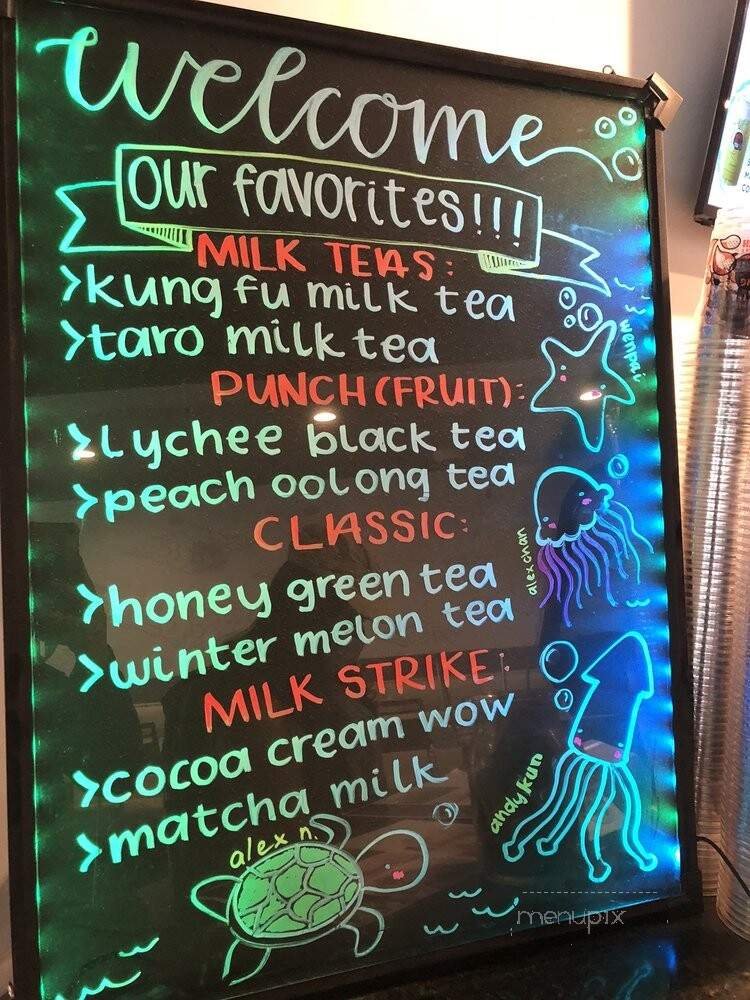 welcome
our favorites!!!
MILK TEAS:
>kung fu milk tea
>taro milk tea
wenpai
PUNCH (FRUIT):
>lychee black tea
>peach oolong tea
CLASSIC:
alex chan
>honey green tea
>winter melon tea
MILK STRIKE:
>cocoa cream wow
>matcha milk
andykun
alex n.
menupix